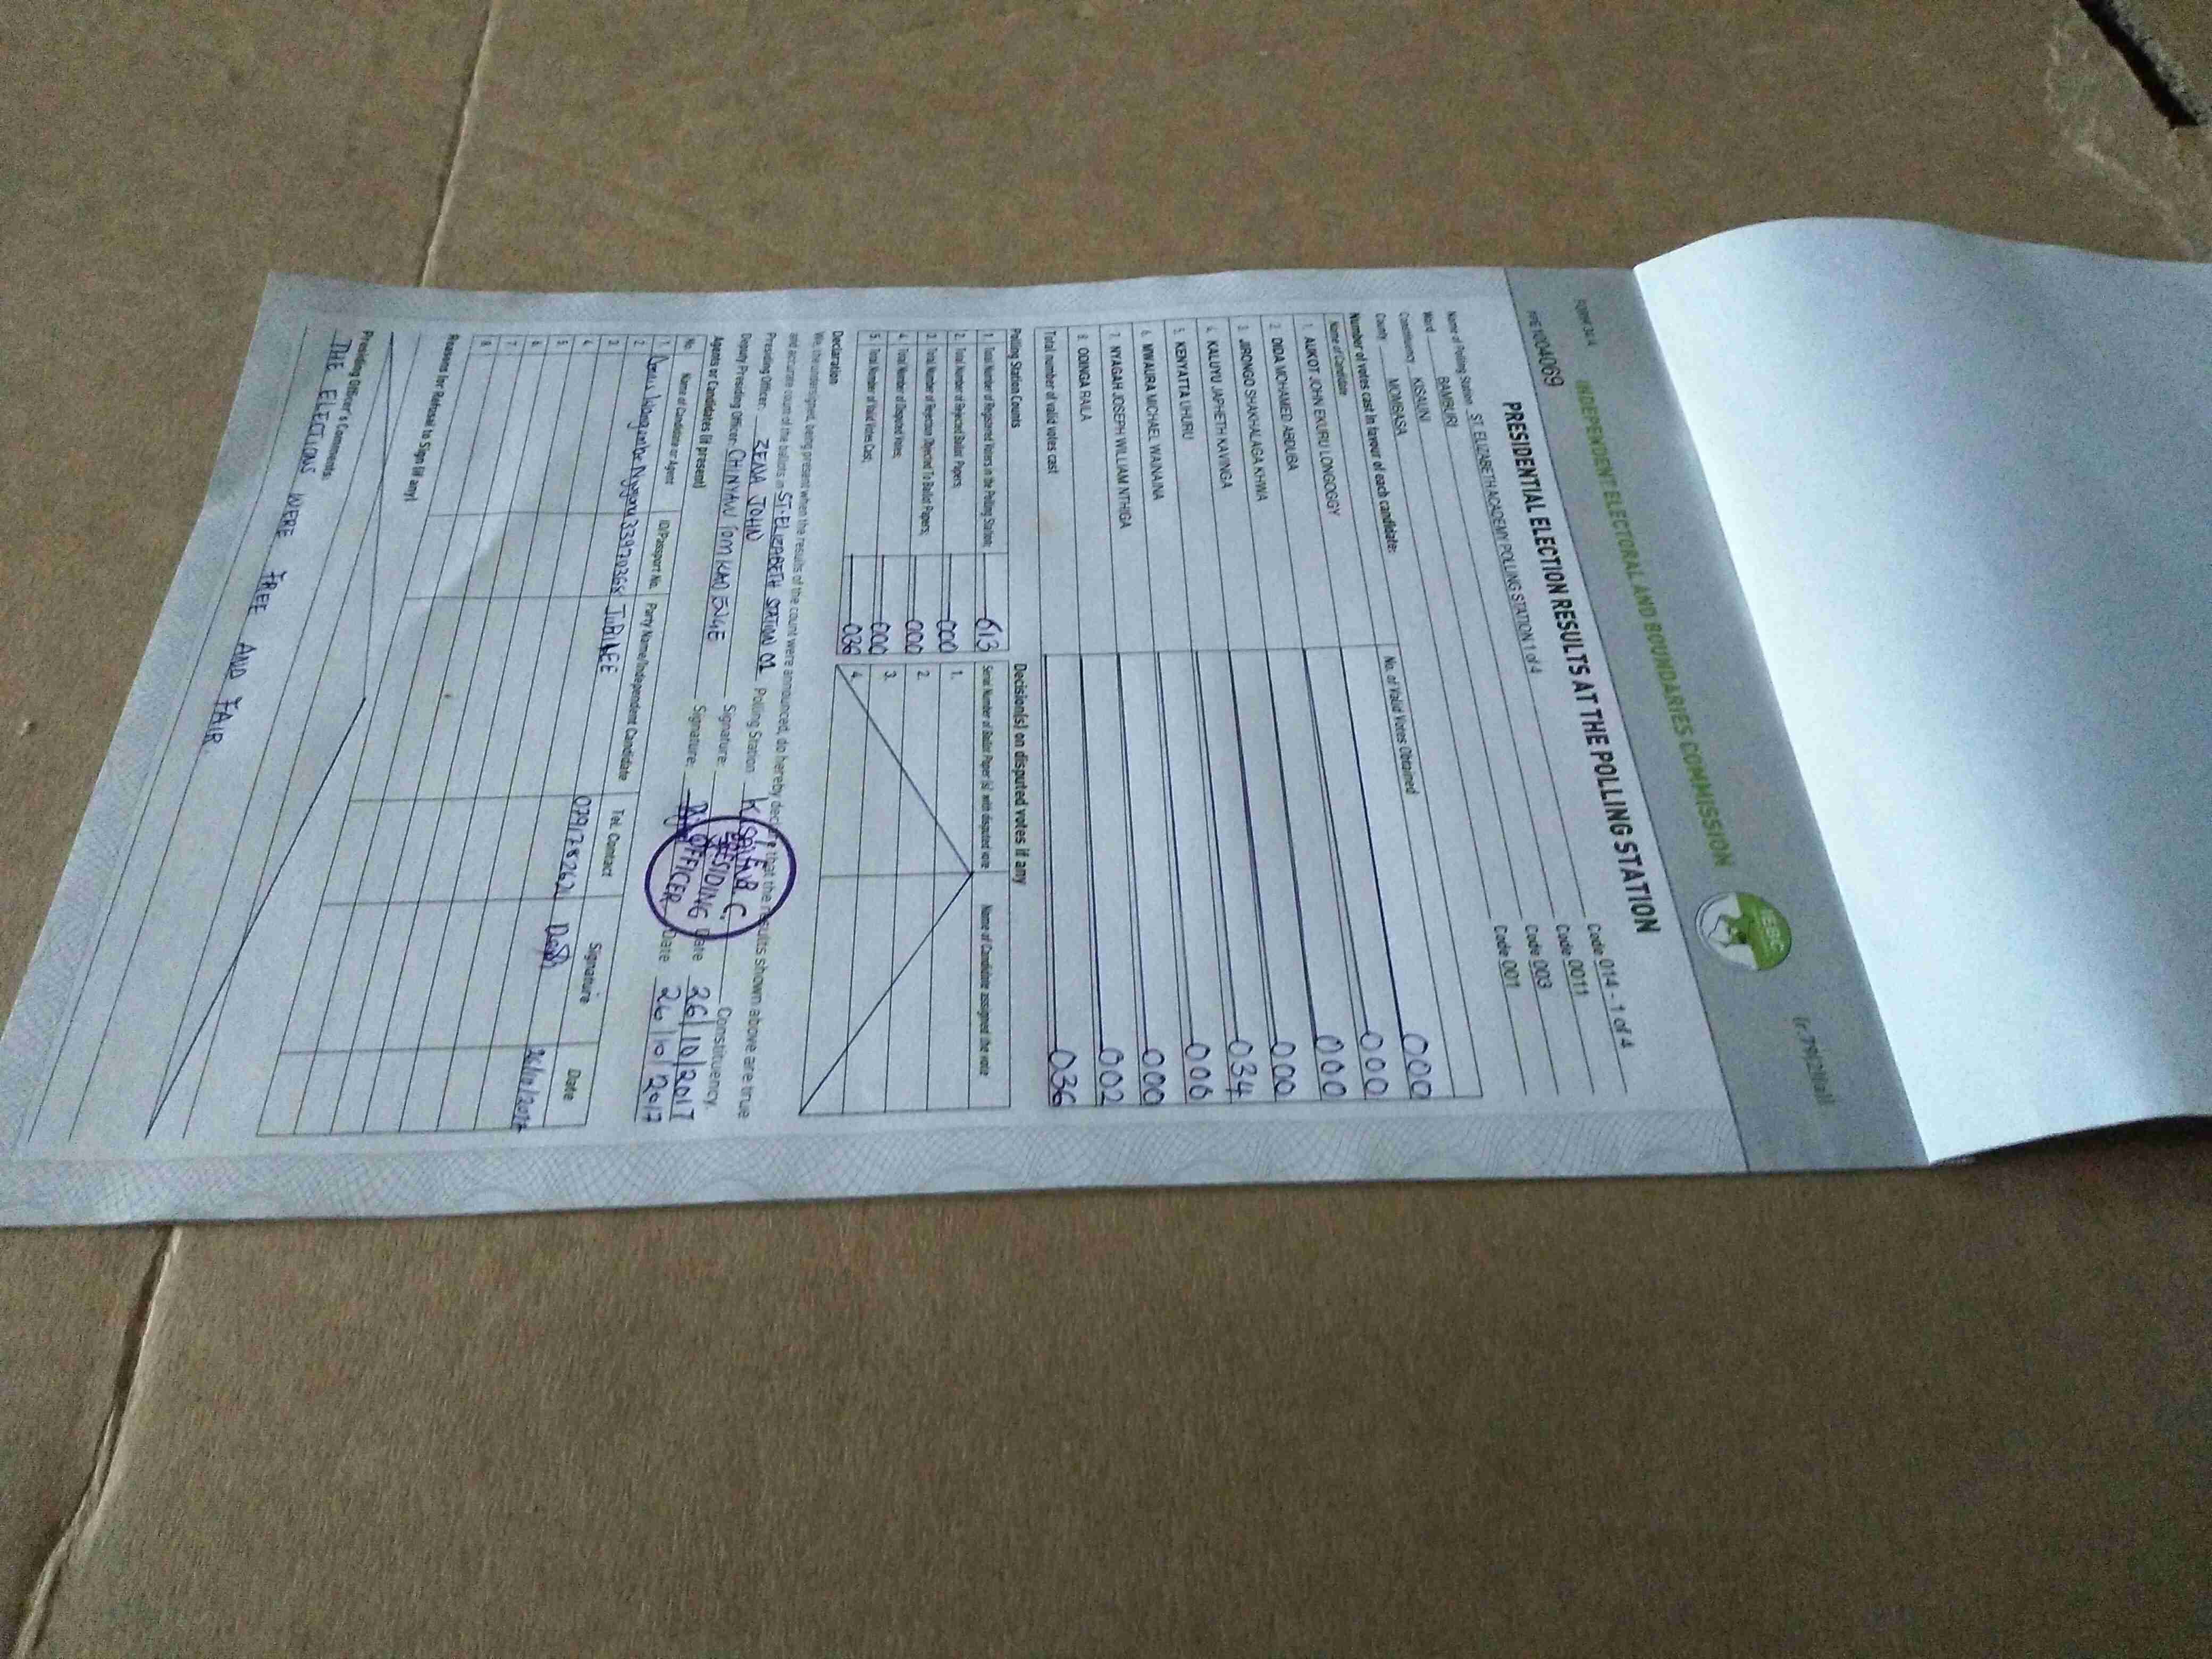 (r.79(2)(a))
FORM 34A
INDEPENDENT ELECTORAL AND BOUNDARIES COMMISSION
IEBC
PPE1004069
PRESIDENTIAL ELECTION RESULTS AT THE POLLING STATION
Name of Polling Station ST. ELIZABETH ACADEMY POLLING STATION 1 of 4 Code 014 - 1 of 4
Ward BAMBURI Code 0011
Constituency KISAUNI Code 003
County MOMBASA Code 001
Number of votes cast in favour of each candidate:
Name of Candidate No. of Valid Votes Obtained
1. AUKOT JOHN EKURU LONGOGGY 000
2. DIDA MOHAMED ABDUBA 000
3. JIRONGO SHAKHALAGA KHWA 000
4. KALUYU JAPHETH KAVINGA 000
5. KENYATTA UHURU 034
6. MWAURA MICHAEL WAINAINA 000
7. NYAGAH JOSEPH WILLIAM NTHIGA 000
8. ODINGA RAILA 002
Total number of valid votes cast 036
Polling Station Counts
1. Total Number of Registered Voters in the Polling Station; 613
2. Total Number of Rejected Ballot Papers; 000
3. Total Number of Rejection Objected To Ballot Papers; 000
4. Total Number of Disputed Votes; 000
5. Total Number of Valid Votes Cast; 036
Decision(s) on disputed votes if any
Serial Number of Ballot Paper (s) with disputed vote Name of Candidate assigned the vote
1.
2.
3.
4.
Declaration
We, the undersigned, being present when the results of the count were announced, do hereby declare that the results shown above are true
and accurate count of the ballots in ST. ELIZABETH STATION 01 Polling Station Constituency.
Presiding Officer: ZENA JOHN Signature: Date 26/10/2017
Deputy Presiding Officer: CHINYAVU TOM Signature: Date 26/10/2017
I.E.B.C.
PRESIDING
OFFICER
Agents or Candidates (if present)
No. Name of Candidate or Agent ID/Passport No. Party Name/Independent Candidate Tel. Contact Signature Date
1. 33970368 JUBILEE 26/10/2017
2
3.
4
5
6
7
8
Reasons for Refusal to Sign (if any)
Presiding Officer's Comments:
THE ELECTIONS WERE FREE AND FAIR